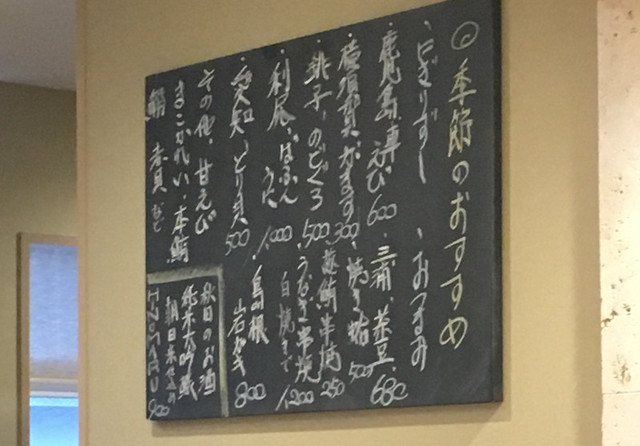 ◎季節のおすすめ
・にぎりずし
・鹿島 車えび 600
・横須賀 かます 300
・銚子、のどぐろ 500
・利尻、ばふんうに 1,000
・愛知、とり貝 500
その他、甘えび
まこがれい、本鮪
鯛 赤貝 など
・おつまみ
・三浦、茶豆 680
・焼き蛤 500
・葱鮪串焼 250
・うなぎ串焼
白焼きも 1,200
・島根
岩がき 800
秋田のお酒
純米大吟醸
朝日米仕込み
HINOMARU 900